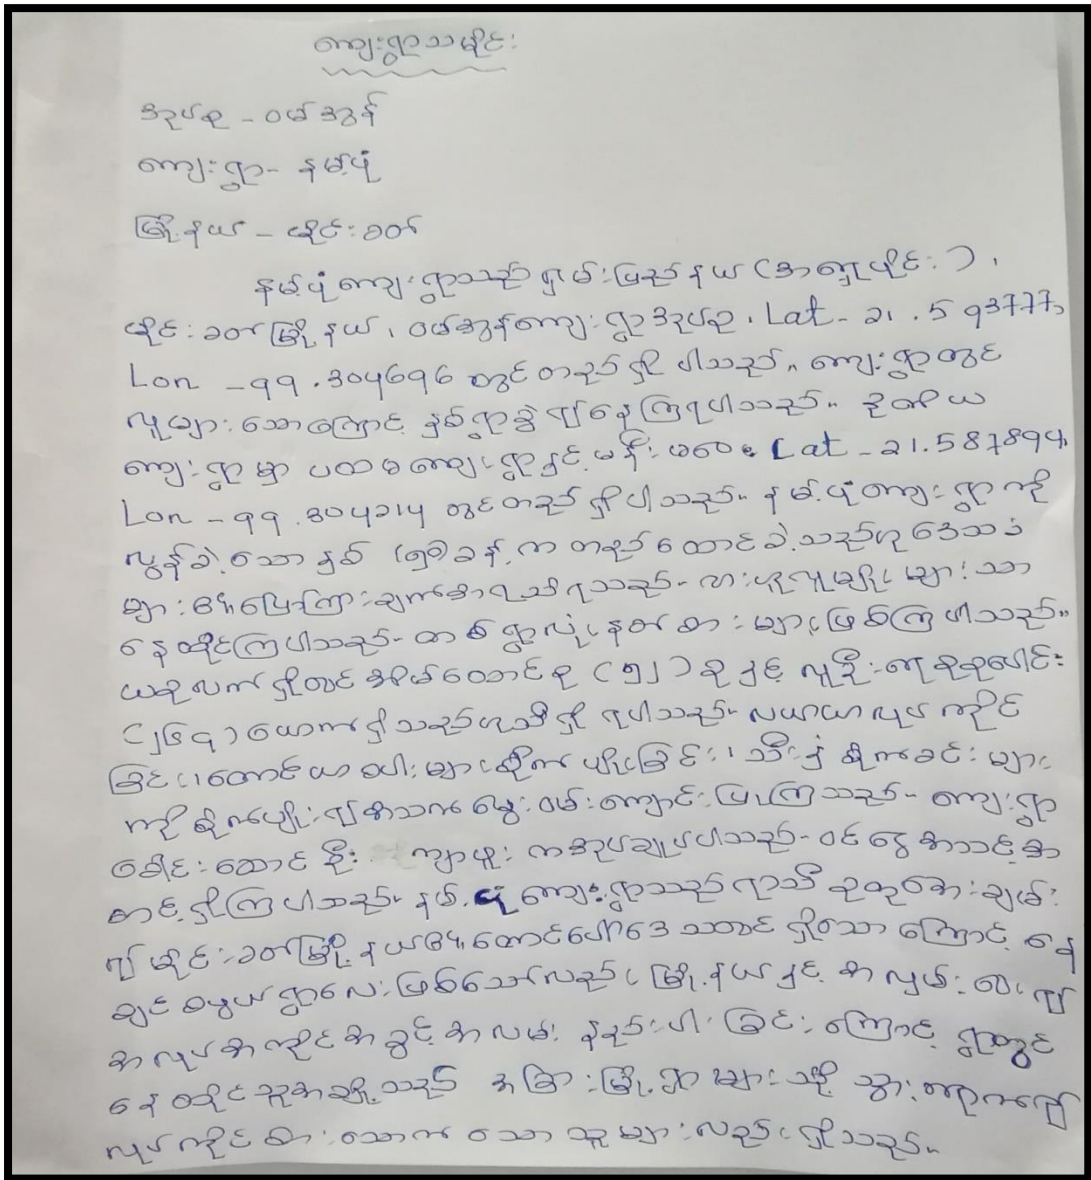 ကျေးရွာသမိုင်း
အုပ်စု - ဝမ်အွန်
ကျေးရွာ - နမ့်ပုံ
မြို့နယ် - မိုင်းခတ်
နမ့်ပုံကျေးရွာသည် ရှမ်းပြည်နယ် (အရှေ့ပိုင်း)၊
မိုင်းခတ်မြို့နယ်၊ ဝမ်အွန်ကျေးရွာအုပ်စု၊ Lat - 21.593777,
Lon - 99.304696 တွင် တည်ရှိပါသည်။ ကျေးရွာတွင်
လူများသောကြောင့် နှစ်ရွာခွဲ၍ နေကြရပါသည်။ ဒုတိယ
ကျေးရွာမှာ ပထမကျေးရွာနှင့် မနီးမဝေး Lat - 21.587894,
Lon - 99.304214 တွင် တည်ရှိပါသည်။ နမ့်ပုံကျေးရွာကို
လွန်ခဲ့သောနှစ် (၅၀) ခန့်က တည်ထောင်ခဲ့သည်ဟု ဒေသခံ
များ၏ ပြောကြားချက်အရ သိရသည်။ လားဟူလူမျိုးများသာ
နေထိုင်ကြပါသည်။ တစ်ရွာလုံး နတ်စားများဖြစ်ကြပါသည်။
ယခုလက်ရှိတွင် အိမ်ထောင်စု (၅၂) စုနှင့် လူဦးရေ စုစုပေါင်း
(၂၆၄) ယောက်ရှိသည်ဟု သိရှိရပါသည်။ လယ်ယာလုပ်ကိုင်
ခြင်း၊ တောင်ယာစပါးများ စိုက်ပျိုးခြင်း၊ သီးနှံစိုက်ခင်းများ
ကို စိုက်ပျိုး၍ အသက်မွေးဝမ်းကျောင်းပြုကြသည်။ ကျေးရွာ
ခေါင်းဆောင် ဦး ကျာဖူး က အုပ်ချုပ်ပါသည်။ ဝင်ငွေအသင့်အ
တင့်ရှိကြပါသည်။ နမ့်ပုံကျေးရွာသည် ရာသီဥတုအေးချမ်း
၍ မိုင်းခတ်မြို့နယ်၏ တောင်ပေါ်ဒေသတွင် ရှိသောကြောင့် နေ
ချင်စဖွယ်ရွာလေးဖြစ်သော်လည်း မြို့နယ်နှင့် အလှမ်းဝေး၍
အလုပ်အကိုင်အခွင့်အလမ်း နည်းပါးခြင်းကြောင့် ရွာတွင်
နေထိုင်သူအချို့သည် အခြားမြို့ရွာများသို့ သွားရောက်၍
လုပ်ကိုင်စားသောက်သော သူများလည်း ရှိသည်။